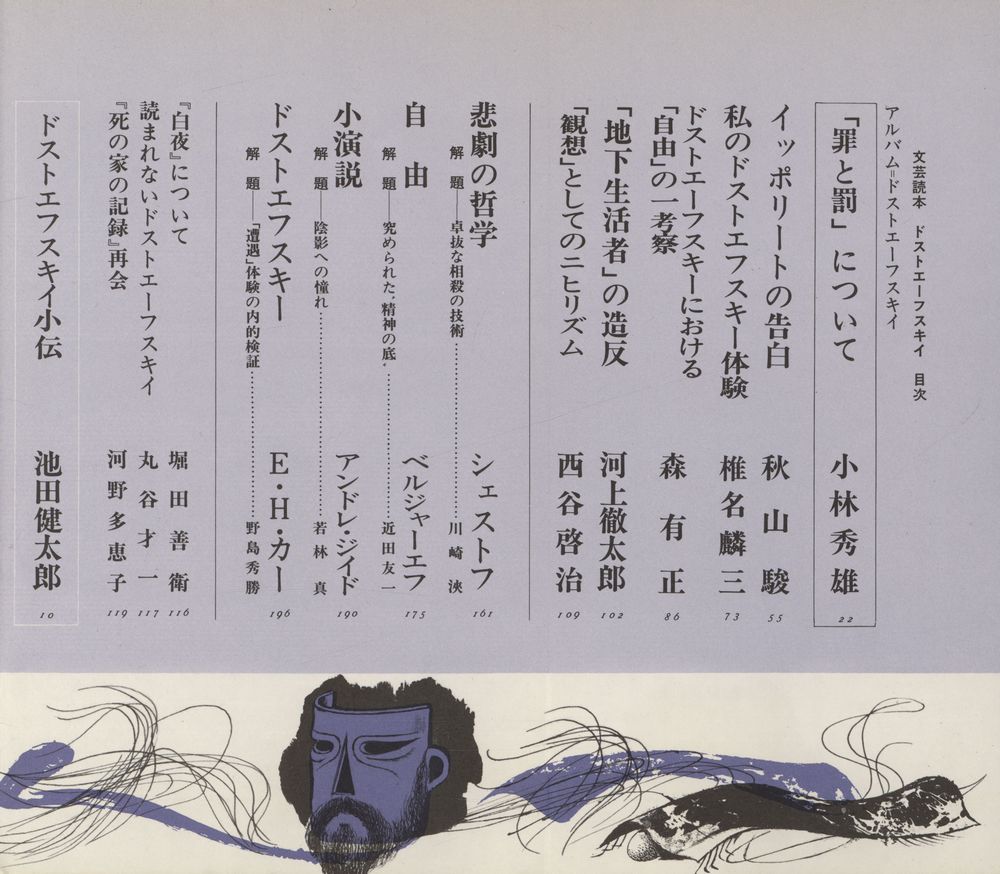 文芸読本 ドストエーフスキイ 目次
アルバム=ドストエーフスキイ
「罪と罰」について 小林秀雄 22
イッポリートの告白 秋山駿 55
私のドストエフスキー体験 椎名麟三 73
ドストエーフスキーにおける
「自由」の一考察 森有正 86
「地下生活者」の造反 河上徹太郎 102
「観想」としてのニヒリズム 西谷啓治 109
悲劇の哲学 シェストフ 161
解題――卓抜な相殺の技術………川崎浹
自由 ベルジャーエフ 175
解題――究められた〝精神の底〟………近田友一
小演説 アンドレ・ジイド 190
解題――陰影への憧れ………若林真
ドストエフスキー E・H・カー 196
解題――「遭遇」体験の内的検証………野島秀勝
『白夜』について 堀田善衛 116
読まれないドストエーフスキイ 丸谷才一 117
『死の家の記録』再会 河野多恵子 119
ドストエフスキイ小伝 池田健太郎 10